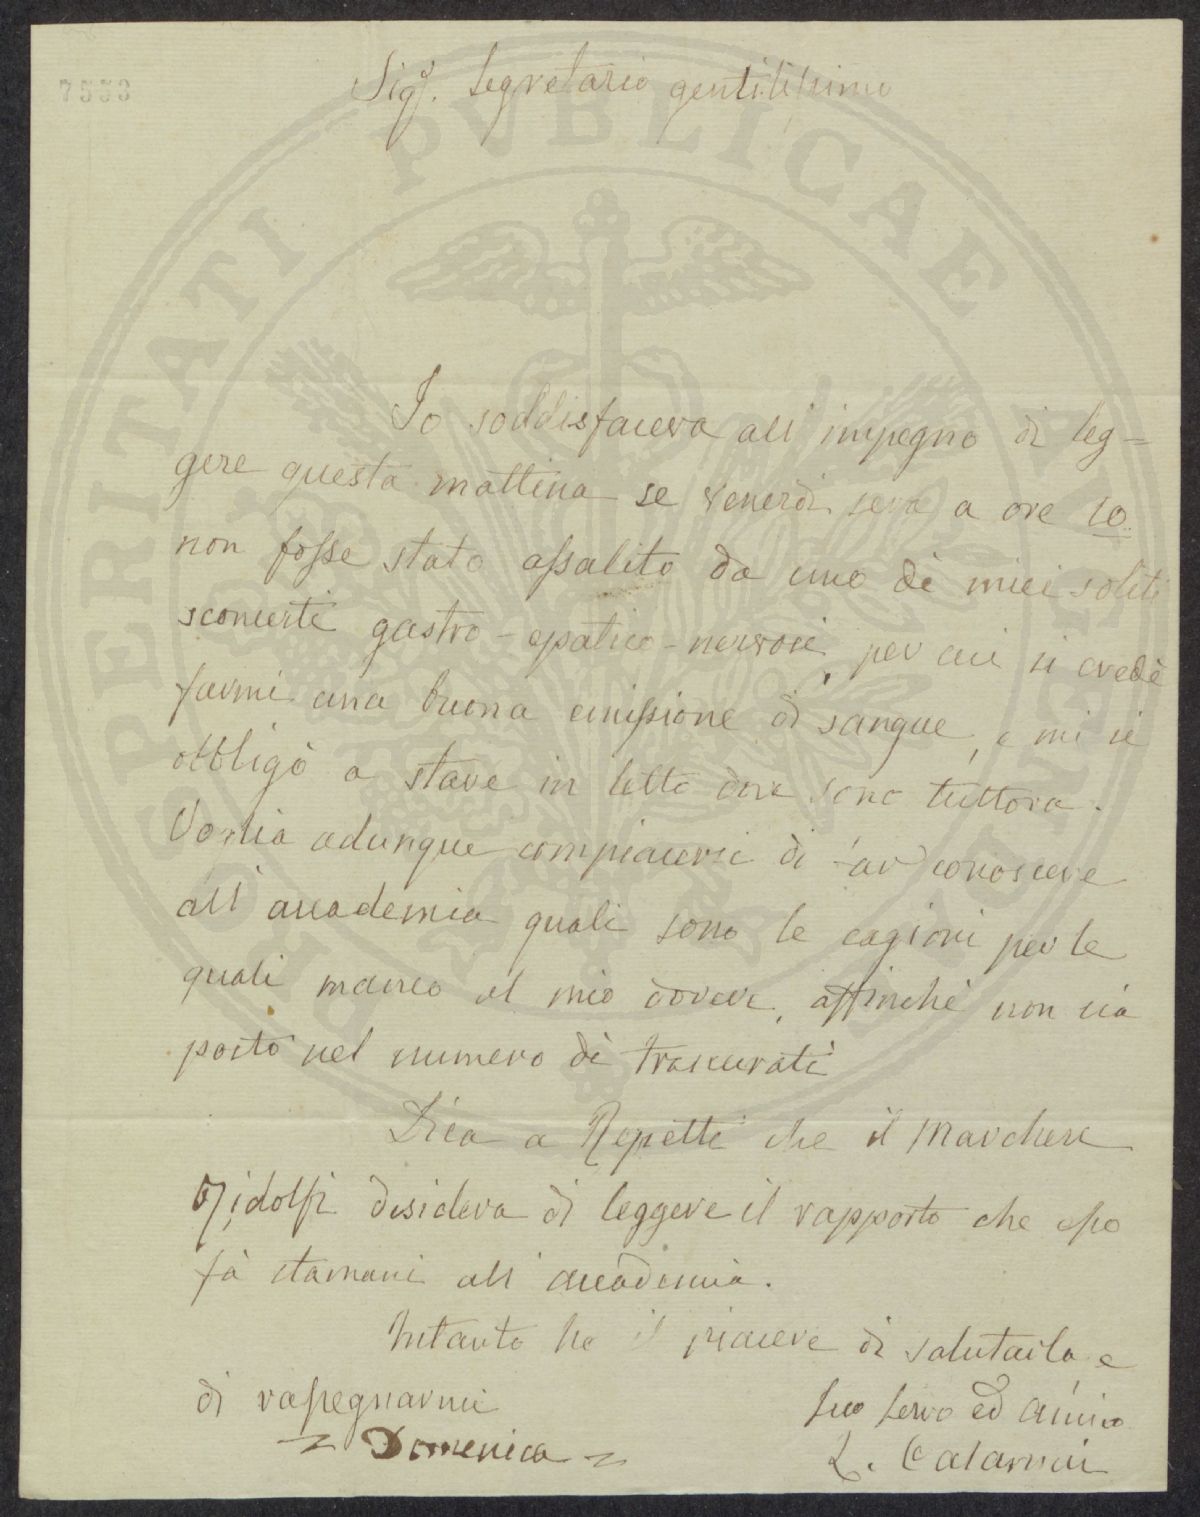 7553
Sigr. Segretario gentilissimo
Io soddisfaceva all'impegno di leg=
gere questa mattina se venerdì sera a ore 10.
non fosse stato assalito da uno de miei soliti
sconcerti gastro-epatico-nervosi, per cui si credè
farmi una buona emissione di sangue, e mi si
obbligò a stare in letto dove sono tuttora.
Voglia adunque compiacersi di far conoscere
all'accademia quali sono le cagioni per le
quali manco al mio dovere, affinchè non sia
posto nel numero de trascurati
Dica a Repetti che il Marchese
Ridolfi desidera di leggere il rapporto che esso
fà stamani all'accademia.
Intanto ho il piacere di salutarla e
di rassegnarmi
Suo servo ed amico
Domenica
L. Calamai
PROSPERITATI PVBLICAE AVGENDAE